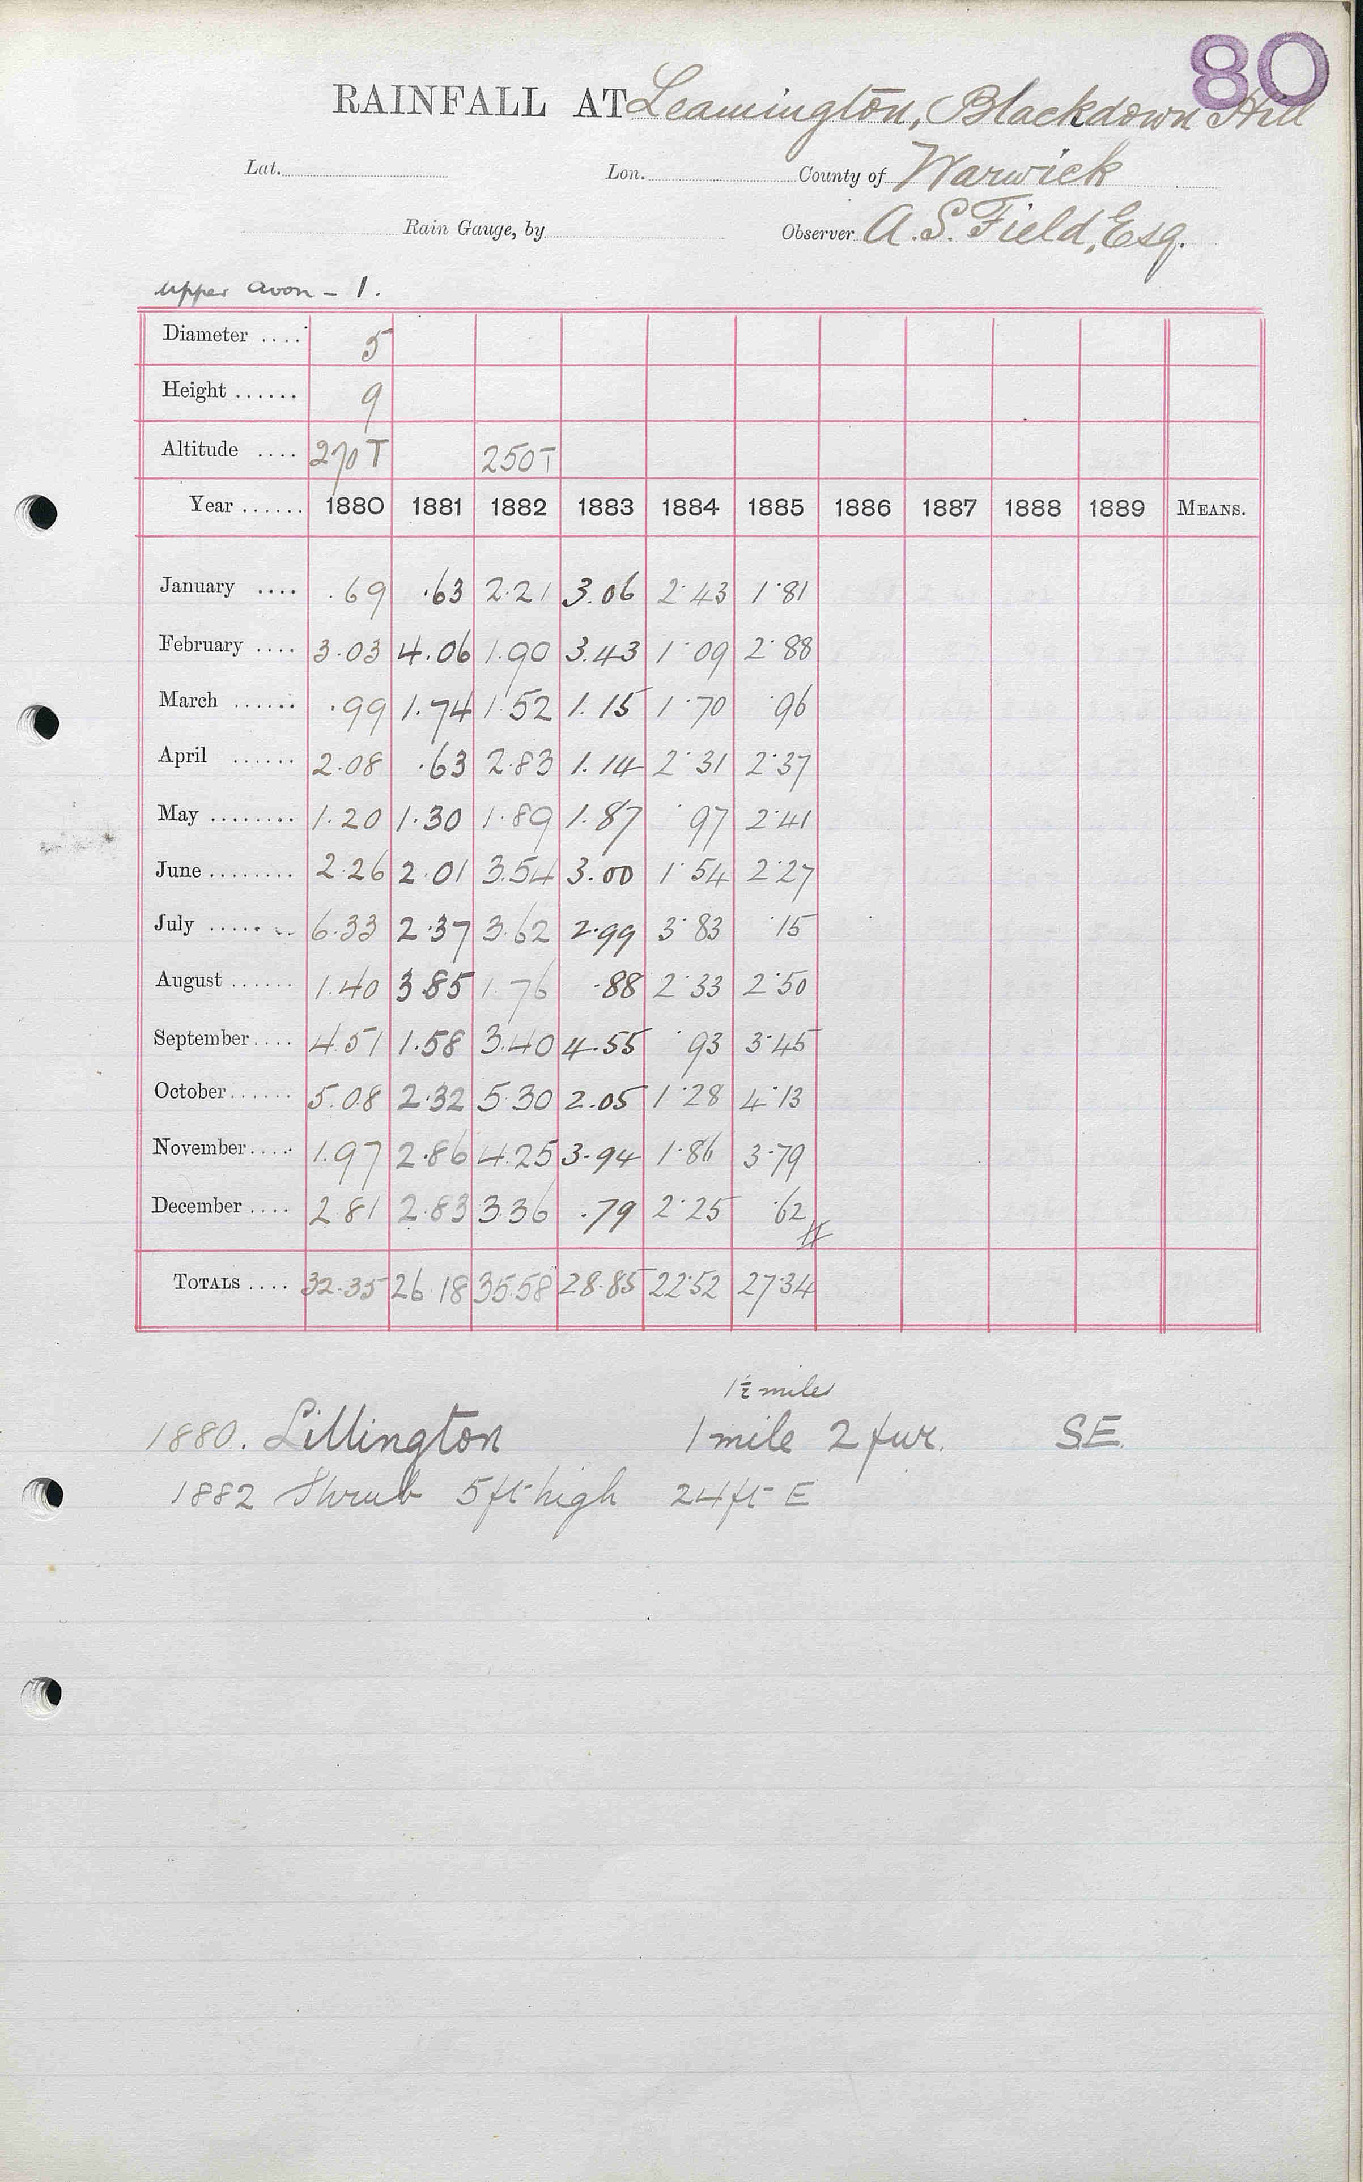 80
RAINFALL AT Leamington, Blackdown Hill
Lat. Lon. County of Warwick
Rain Gauge, by Observer A. S. Field, Esq.
Upper Avon - 1.
Diameter .... 5
Height ...... 9
Altitude .... 270 T 250 T
Year ...... 1880 1881 1882 1883 1884 1885 1886 1887 1888 1889 MEANS.
January .... .69 .63 2.21 3.06 2.43 1.81
February .... 3.03 4.06 1.90 3.43 1.09 2.88
March ...... .99 1.74 1.52 1.15 1.70 .96
April ...... 2.08 .63 2.83 1.14 2.31 2.37
May ........ 1.20 1.30 1.89 1.87 .97 2.41
June ........ 2.26 2.01 3.54 3.00 1.54 2.27
July ........ 6.33 2.37 3.62 2.99 3.83 .15
August ...... 1.40 3.85 1.76 .88 2.33 2.50
September .... 4.51 1.58 3.40 4.55 .93 3.45
October ...... 5.08 2.32 5.30 2.05 1.28 4.13
November .... 1.97 2.86 4.25 3.94 1.86 3.79
December .... 2.81 2.83 3.36 .79 2.25 .62
TOTALS .... 32.35 26.18 35.58 28.85 22.52 27.34
1½ miles
1880. Lillington 1 mile 2 fur. SE.
1882 Shrub 5 ft high 24 ft E